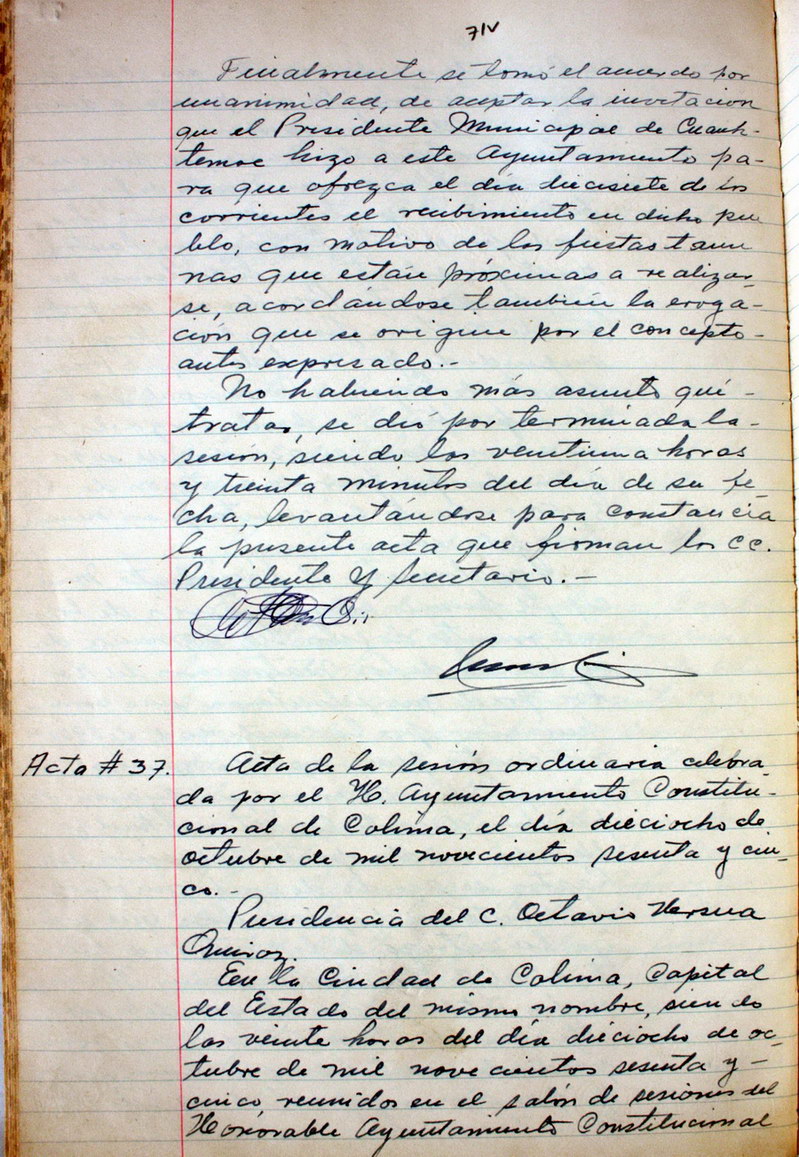 71V
Finalmente se tomó el acuerdo por
unanimidad, de aceptar la invitación
que el Presidente Municipal de Cuauh-
temoc hizo a este Ayuntamiento pa-
ra que ofrezca el día diecisiete de los
corrientes el recibimiento en dicho pue
blo, con motivo de las fiestas tauri
nas que están próximas a realizar
se, acordándose también la eroga-
ción que se origine por el concepto-
antes expresado.-
No habiendo más asunto qué-
tratar, se dió por terminada la-
sesión, siendo las veintiuna horas
y treinta minutos del día de su fe-
cha, levantándose para constancia
la presente acta que firman los CC.
Presidente y Secretario.-
Acta # 37.
Acta de la sesión ordinaria celebra
da por el H. Ayuntamiento Constitu-
cional de Colima, el día dieciocho de
octubre de mil novecientos sesenta y cin-
co.-
Presidencia del C. Octavio
Quiroz.
En la Ciudad de Colima, Capital
del Estado del mismo nombre, siendo
las veinte horas del día dieciocho de oc-
tubre de mil novecientos sesenta y-
cinco reunidos en el salón de sesiones del
Honorable Ayuntamiento Constitucional